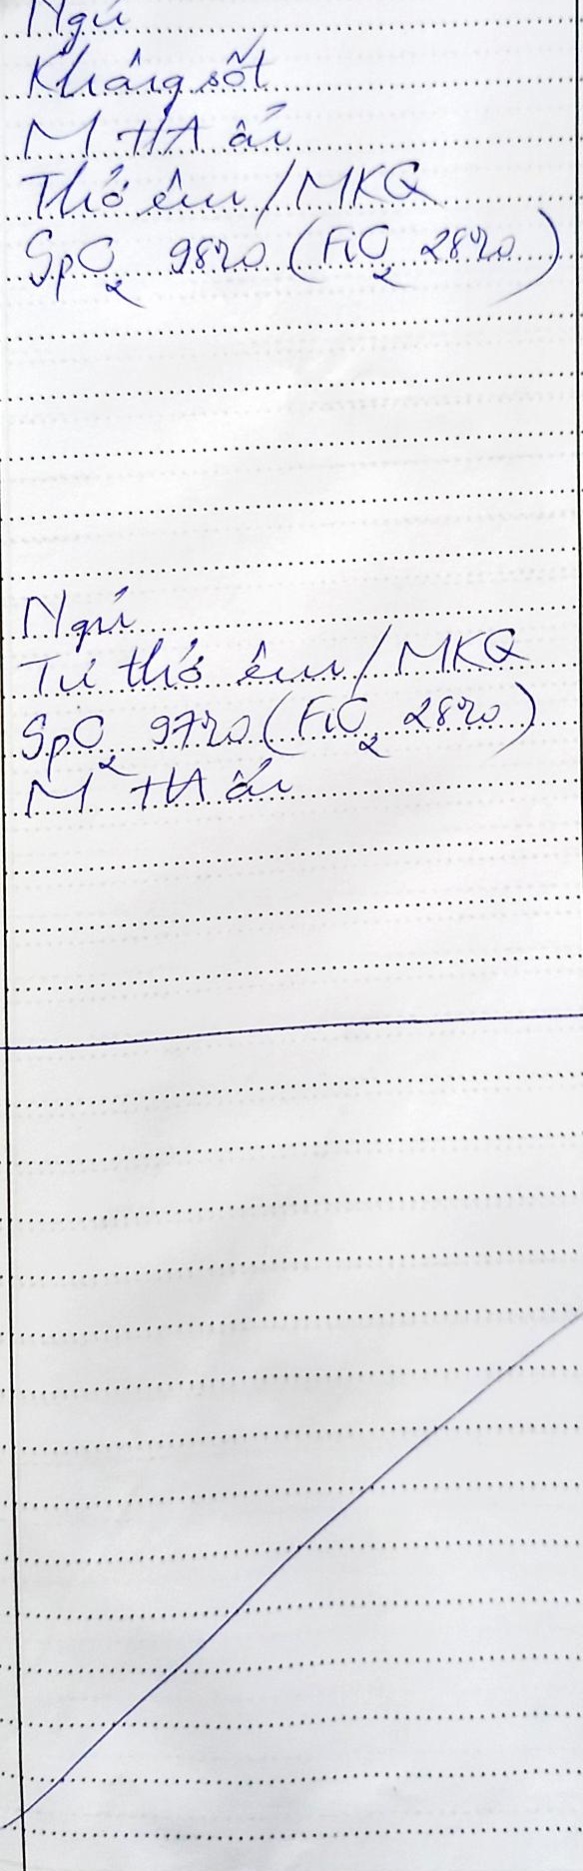 Ngủ
Không sốt
M HA ổn
Thở êm / MKQ
SpO₂ 98% (FiO₂ 28%)
Ngủ
Tự thở êm / MKQ
SpO₂ 97% (FiO₂ 28%)
M HA ổn